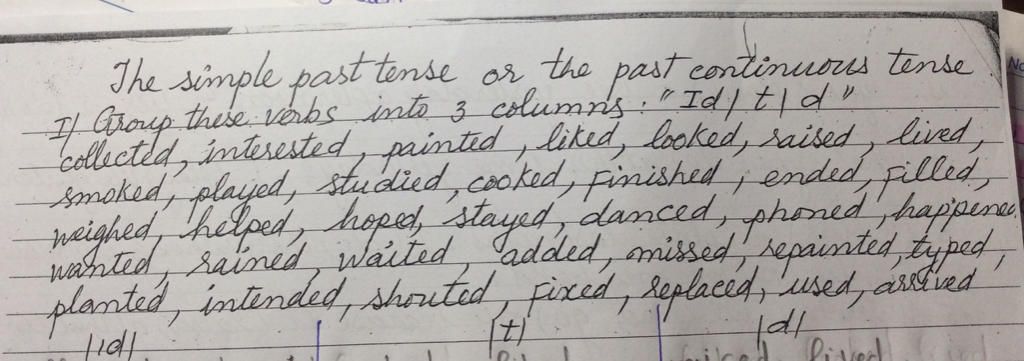 The simple past tense or the past continuous tense
I/ Group these verbs into 3 columns. "Id/ t/ d"
collected, interested, painted, liked, looked, raised, lived,
smoked, played, studied, cooked, finished, ended, filled,
weighed, helped, hoped, stayed, danced, phoned, happened
wanted, rained, waited, added, missed, repainted, typed,
planted, intended, shouted, fixed, replaced, used, arrived
/id/ /t/ /d/